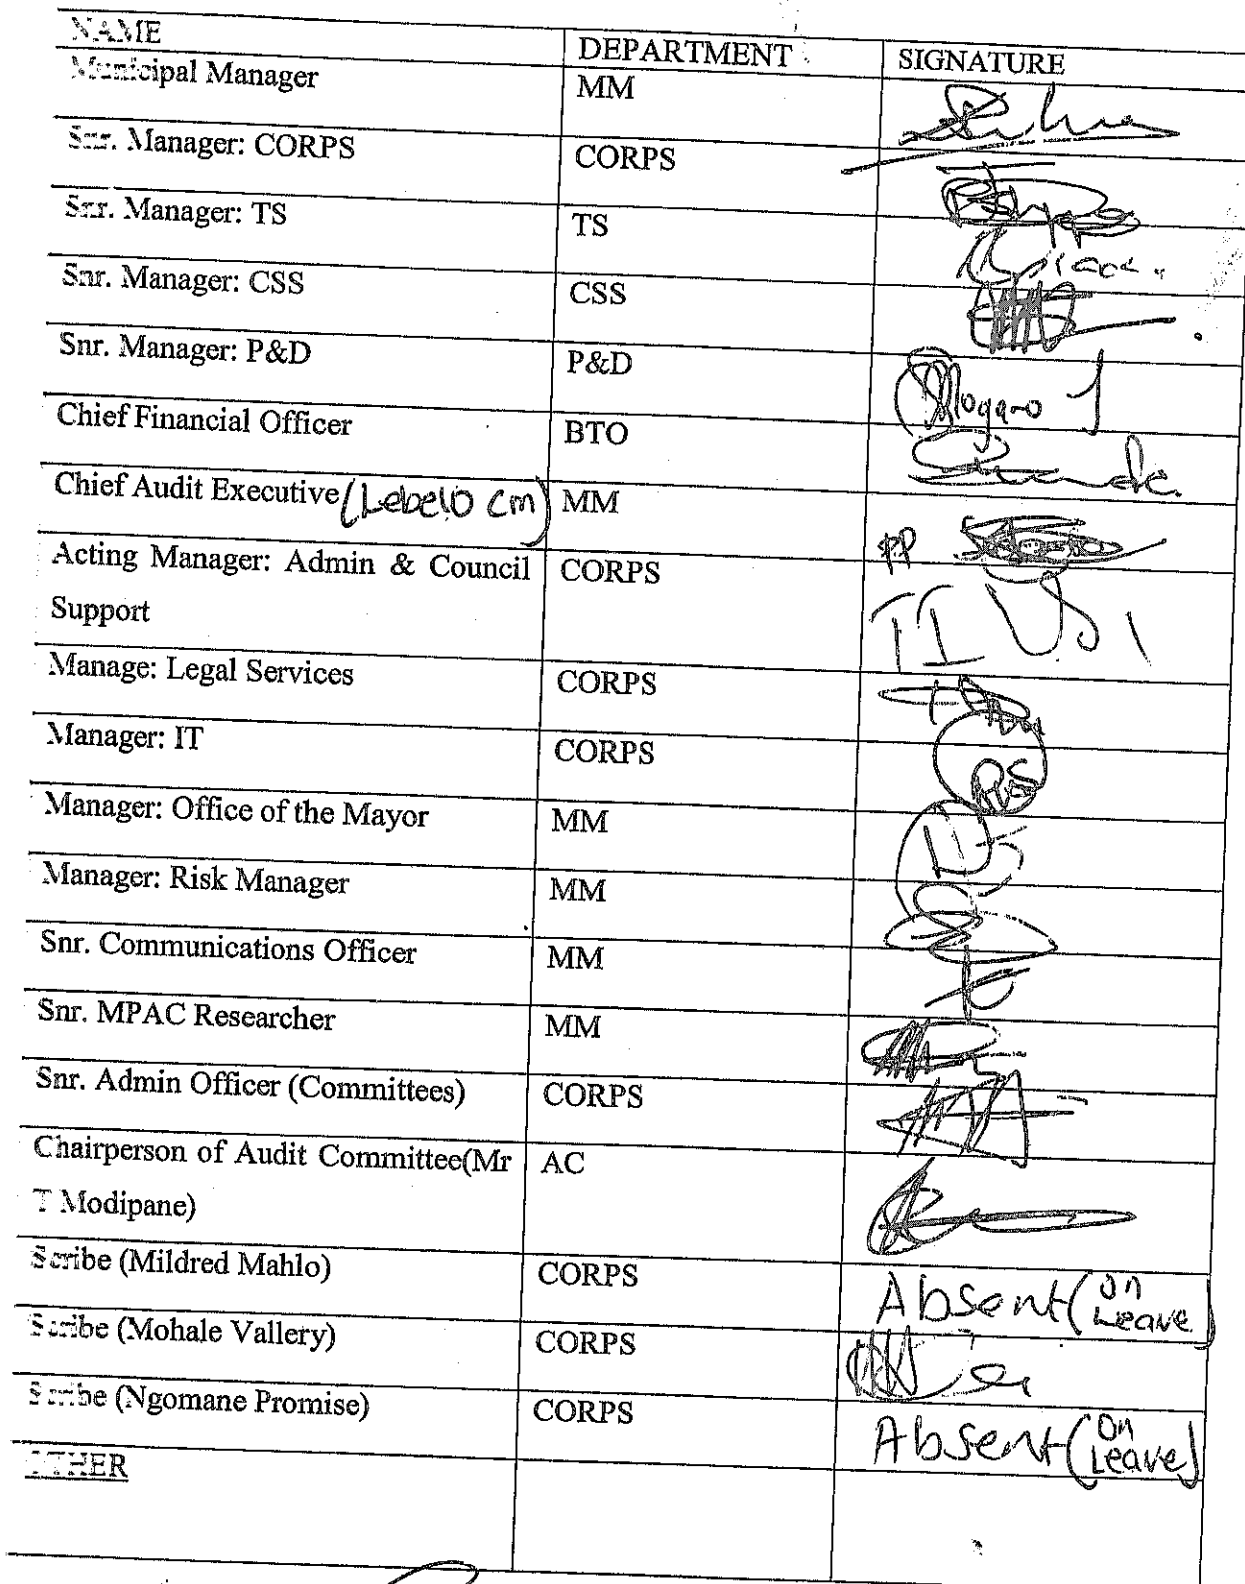 NAME DEPARTMENT SIGNATURE
Municipal Manager MM
Snr. Manager: CORPS CORPS
Snr. Manager: TS TS
Snr. Manager: CSS CSS
Snr. Manager: P&D P&D
Chief Financial Officer BTO
Chief Audit Executive (Lebelo CM) MM
PP
Acting Manager: Admin & Council CORPS
Support
Manage: Legal Services CORPS
Manager: IT CORPS
Manager: Office of the Mayor MM
Manager: Risk Manager MM
Snr. Communications Officer MM
Snr. MPAC Researcher MM
Snr. Admin Officer (Committees) CORPS
Chairperson of Audit Committee(Mr AC
T Modipane)
Scribe (Mildred Mahlo) CORPS Absent (on Leave)
Scribe (Mohale Vallery) CORPS
Scribe (Ngomane Promise) CORPS Absent (on Leave)
OTHER